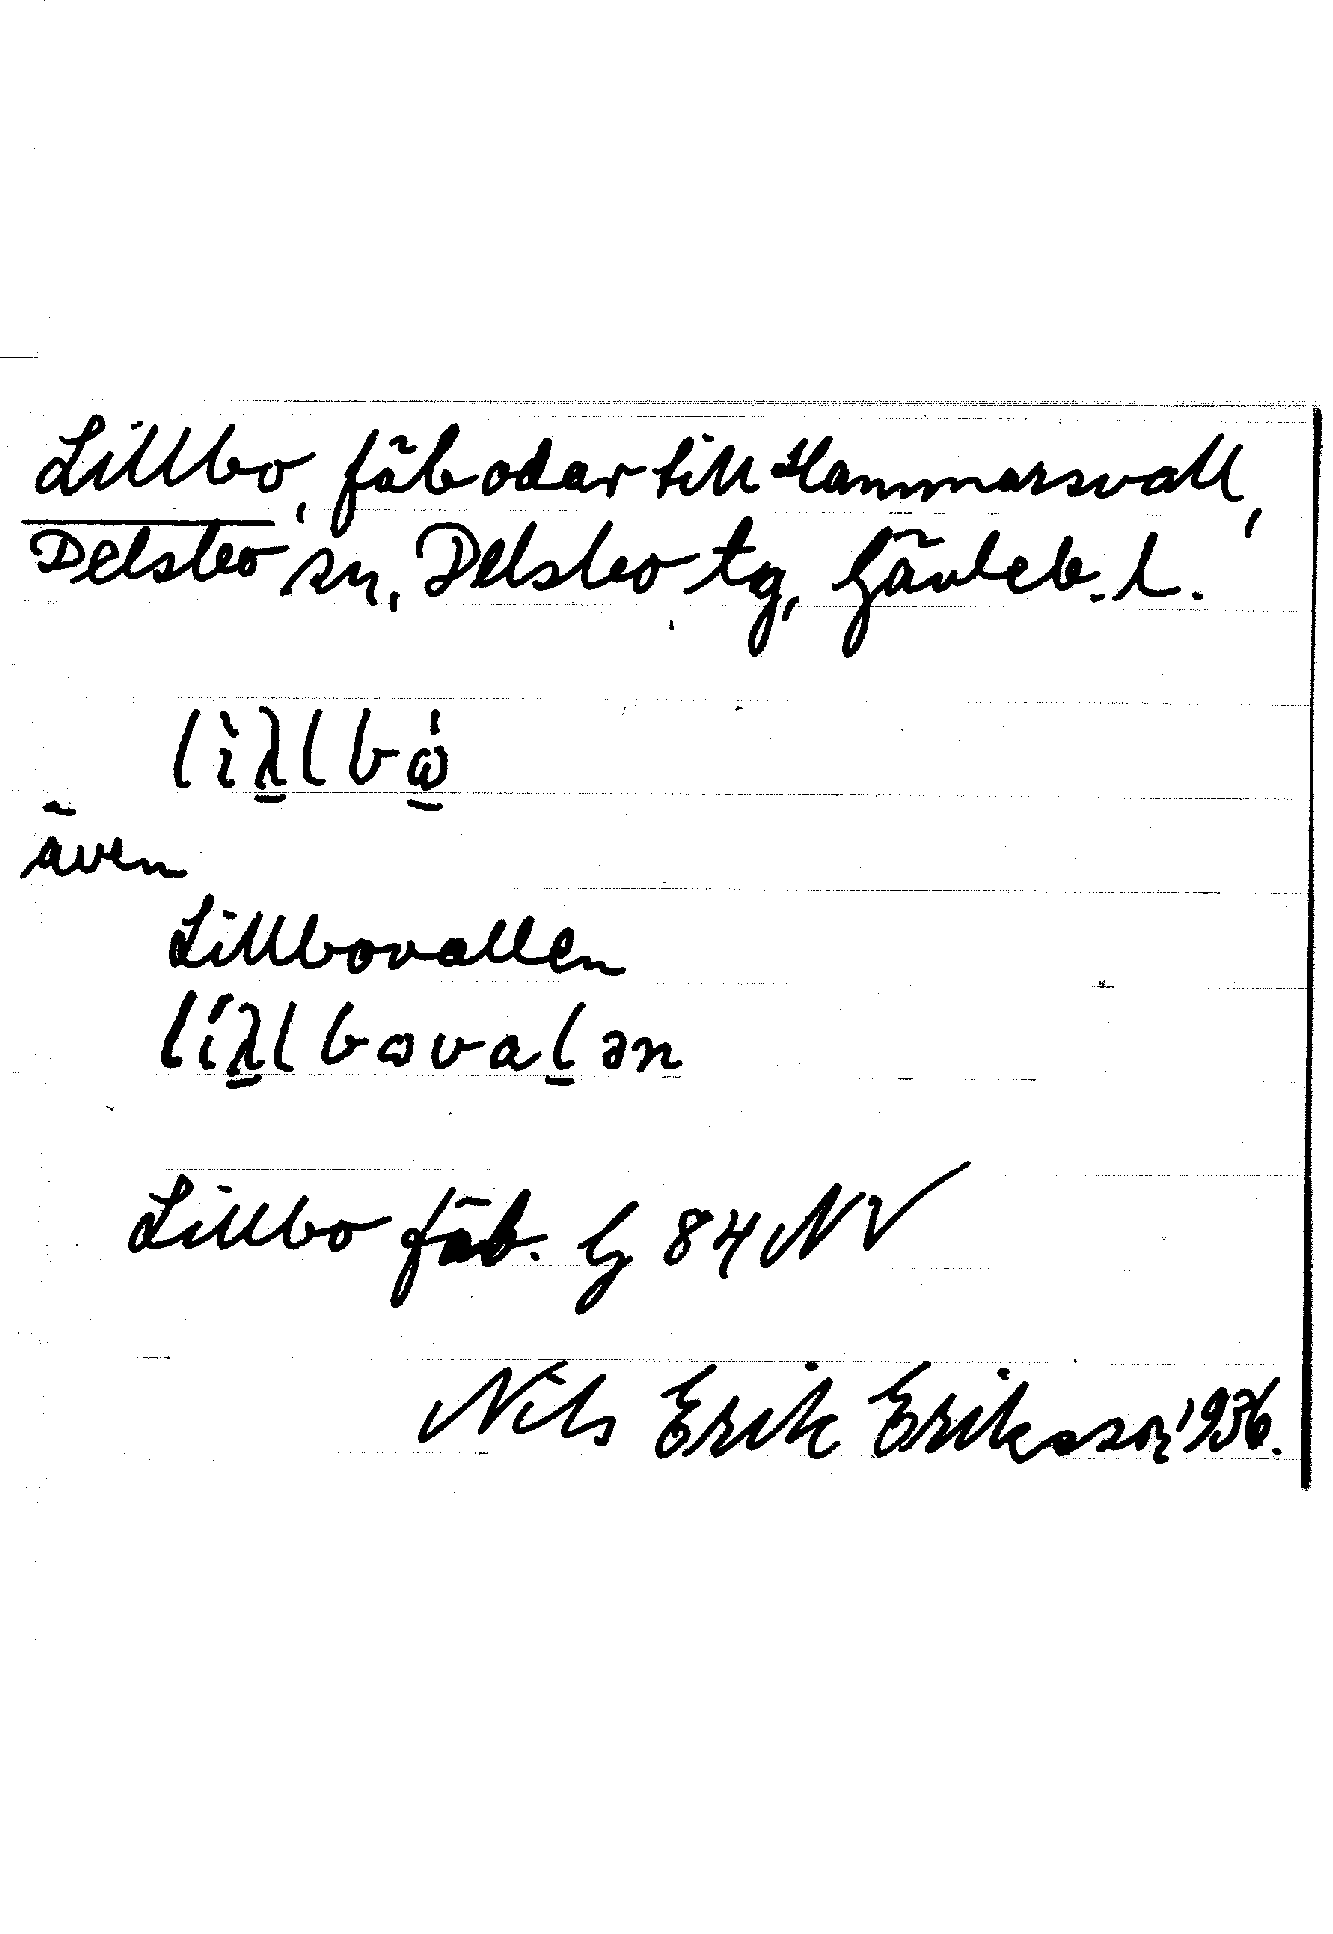 Lillbo, fäbodar till Hammarsvall,
Delsbo sn, Delsbo tg, Gävleb. l.
även
Lillbovallen
Lillbo fäb. G 84 NV
Nils Erik Eriksson 1936.